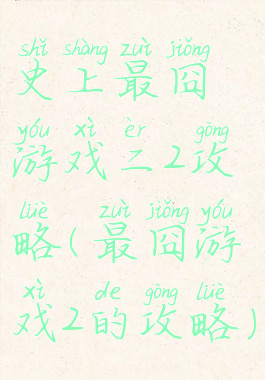 shǐ shàng zuì jiǒng
史上最囧
yóu xì èr gōng
游戏二2攻
lüè zuì jiǒng yóu
略(最囧游
xì de gōng lüè
戏2的攻略)